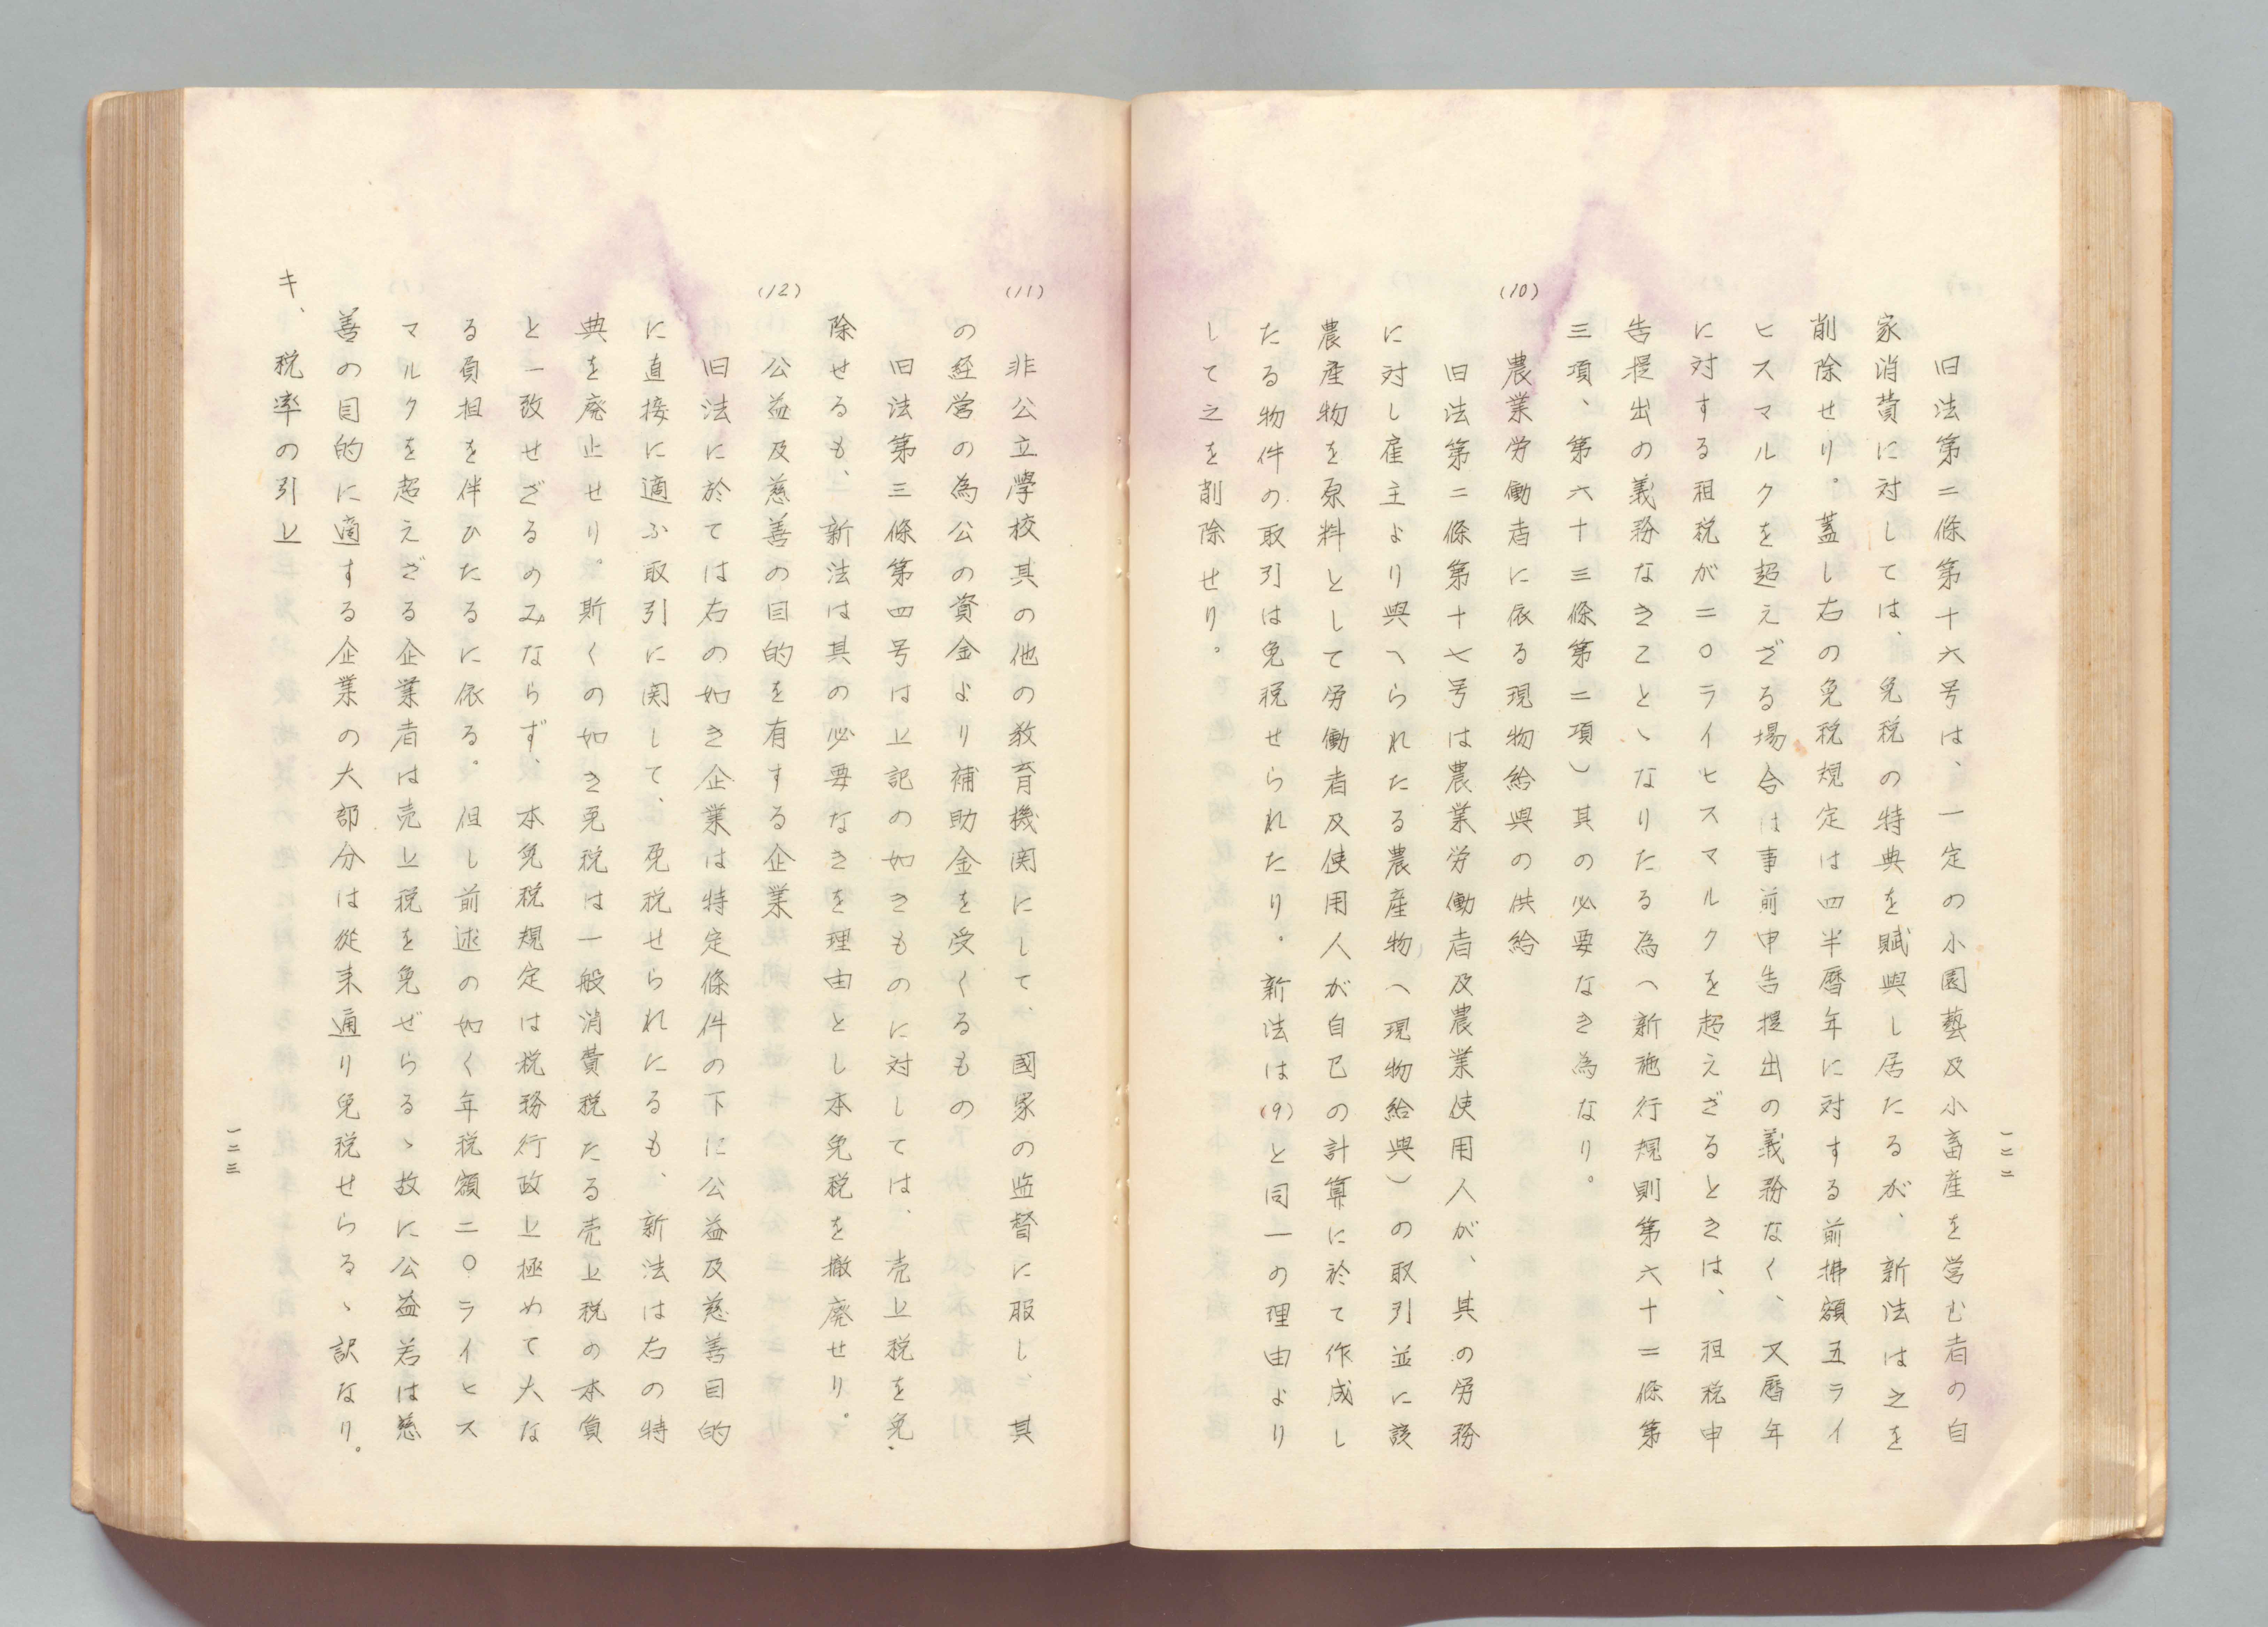 旧法第二條第十六号は、一定の小園藝及小畜産を営む者の自
家消費に対しては、免税の特典を賦與し居たるが、新法は之を
削除せり。蓋し右の免税規定は四半暦年に対する前拂額五ライ
ヒスマルクを超えざる場合は事前申告提出の義務なく、又暦年
に対する租税が二〇ライヒスマルクを超えざるときは、租税申
告提出の義務なきことゝなりたる為（新施行規則第六十二條第
三項、第六十三條第二項）其の必要なき為なり。
(10) 農業労働者に依る現物給與の供給
旧法第二條第十七号は農業労働者及農業使用人が、其の労務
に対し雇主より與へられたる農産物（現物給與）の取引並に該
農産物を原料として労働者及使用人が自己の計算に於て作成し
たる物件の取引は免税せられたり。新法は(9)と同一の理由より
して之を削除せり。
一二二
(11) 非公立學校其の他の教育機関にして、國家の監督に服し、其
の経営の為公の資金より補助金を受くるもの
旧法第三條第四号は上記の如きものに対しては、売上税を免
除せるも、新法は其の必要なきを理由とし本免税を撤廃せり。
(12) 公益及慈善の目的を有する企業
旧法に於ては右の如き企業は特定條件の下に公益及慈善目的
に直接に適ふ取引に関して、免税せられにるも、新法は右の特
典を廃止せり。斯くの如き免税は一般消費税たる売上税の本質
と一致せざるのみならず、本免税規定は税務行政上極めて大な
る負担を伴ひたるに依る。但し前述の如く年税額二〇ライヒス
マルクを超えざる企業者は売上税を免ぜらるゝ故に公益若は慈
善の目的に適する企業の大部分は從来通り免税せらるゝ訳なり。
キ、税率の引上
一二三